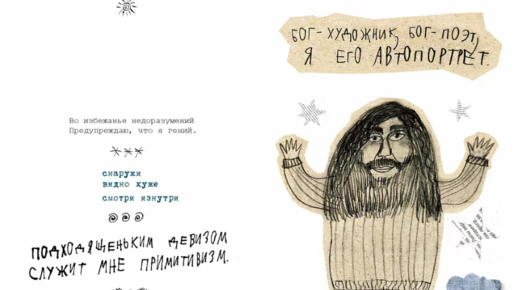 Во избежанье недоразумений
Предупреждаю, что я гений.
снаружи
видно хуже
смотри изнутри
ПОДХОДЯЩЕНЬКИМ ДЕВИЗОМ
СЛУЖИТ МНЕ ПРИМИТИВИЗМ.
БОГ-ХУДОЖНИК, БОГ-ПОЭТ,
Я ЕГО АВТОПОРТРЕТ.